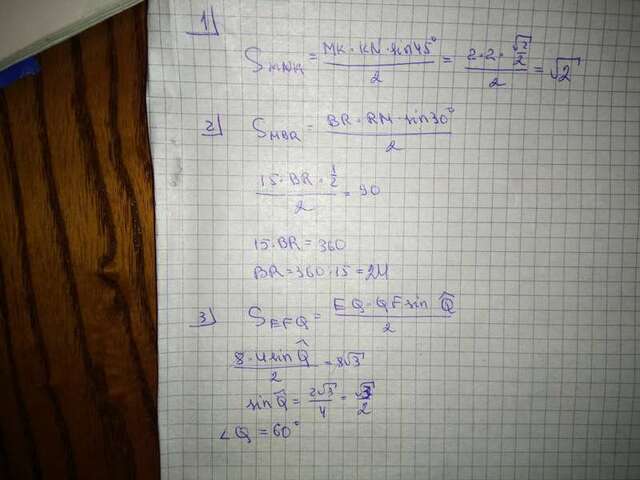 1)
S_MNK = (MK·KN·sin45°)/2 = (2·2·√2/2)/2 = √2
2) S_MBR = (BR·RM·sin30°)/2
(15·BR·1/2)/2 = 90
15·BR = 360
BR = 360·15 = 24
3) S_EFQ = (EQ·QF sin Q̂)/2
(8·4 sin Q̂)/2 = 8√3
sin Q̂ = 2√3/4 = √3/2
∠Q = 60°